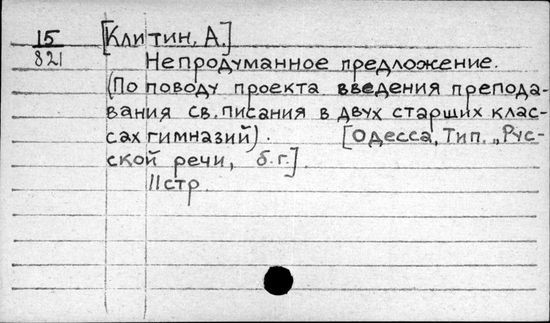 15 [Клитин, А.]
821 Непродуманное предложение.
(По поводу проекта введения препода-
вания св. писания в двух старших клас-
сах гимназий). [Одесса, Тип. „Рус-
ской речи, б.г.]
11 стр